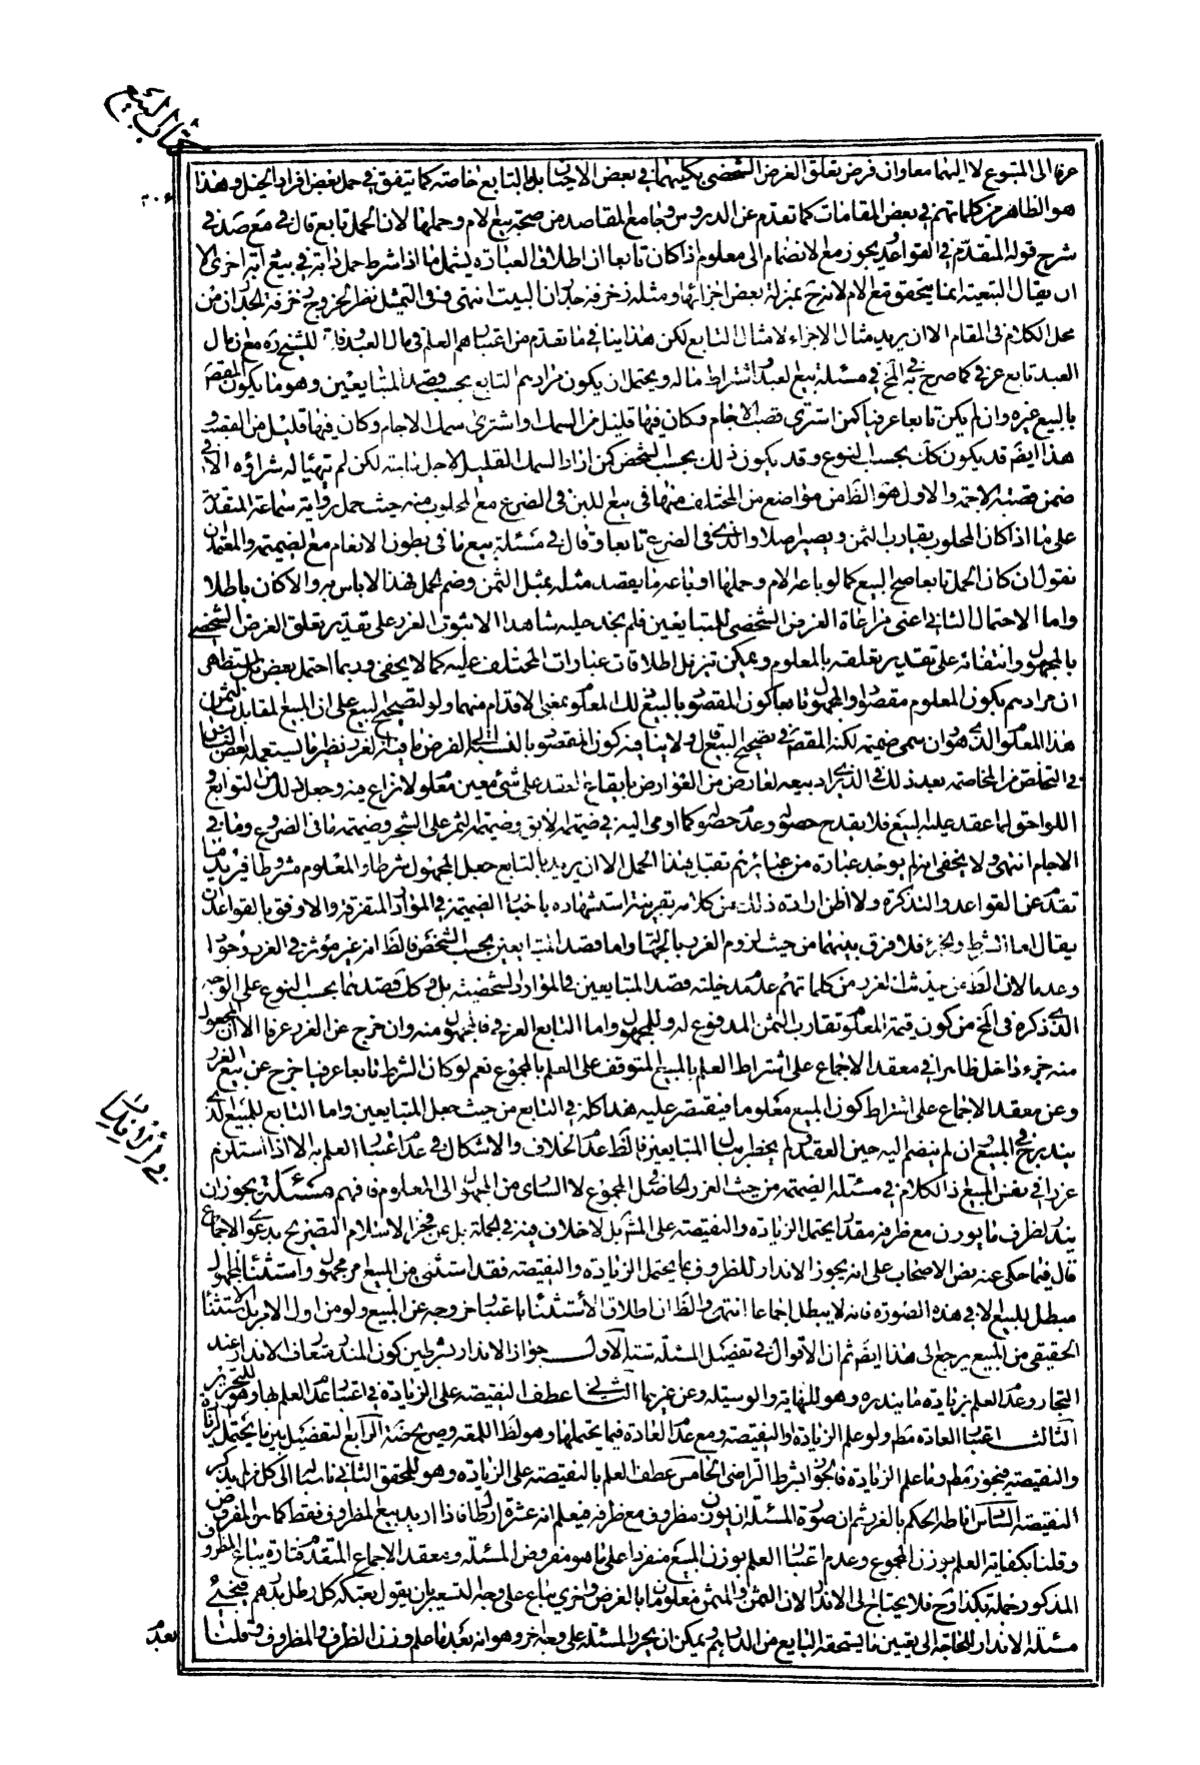 كتاب البيع
٢٠٦
عرفا الى المتبوع لا اليهما معا وان فرض تعلق الغرض الشخصي بكليهما في بعض الاحيان او بالتابع خاصة كما يتفق في حمل بعض افراد الخيل وهذا
هو الظاهر من كلماتهم في بعض المقامات كما تقدم عن الدروس وجامع المقاصد من صحة بيع الام وحملها لان الحمل تابع قال في مع صد في
شرح قوله المتقدم في القواعد يجوز مع الانضمام الى معلوم اذا كان تابعا ان اطلاق العبارة يشمل ما اذا شرط حمل دابة في بيع دابة اخرى الا
ان يقال التبعية انما يتحقق مع الام لانه ح بمنزلة بعض اجزائها ومثله زخرفة جدران البيت انتهى وفي التمثيل نظر لخروج زخرفة الجدران من
محل الكلام في المقام الا ان يريد مثال الاجزاء لا مثال التابع لكن هذا ينافي ما تقدم من اعتبارهم العلم في مال العبد وفاقا للشيخ ره مع ان مال
العبد تابع عرفي كما صرح به في لف في مسئلة بيع العبد واشتراط ماله ويحتمل ان يكون مرادهم التابع بحسب قصد المتبايعين وهو ما يكون المقصود
بالبيع غيره وان لم يكن تابعا عرفيا كمن اشترى قصب الاجام وكان فيها قليل من السمك او اشترى سمك الاجام وكان فيها قليل من القصب
هذا ايضا قد يكون كك بحسب النوع وقد يكون ذلك بحسب الشخص كمن اراد السمك القليل لاجل حاجته لكن لم تهيأ له شراؤه الا في
ضمن قصب الاجمة والاول هو الظ من مواضع من المختلف منها في بيع اللبن في الضرع مع المحلوب منه حيث حمل رواية سماعة المتقدمة
على ما اذا كان المحلوب يقارب الثمن ويصير اصلا والذي في الضرع تابعا وقال في مسئلة بيع ما في بطون الانعام مع الضميمة والمعتمدان
نقول ان كان الحمل تابعا صح البيع كما لو باعه الام وحملها او باعه ما يقصد مثله بمثل الثمن وضم الحمل فهذا لا باس به والا كان باطلا
واما الاحتمال الثاني اعني مراعاة الغرض الشخصي للمتبايعين فلم نجد عليه شاهدا الا ثبوت الغرر على تقدير تعلق الغرض الشخصي
بالمجهول وانتفائه على تقدير تعلقه بالمعلوم ويمكن تنزيل اطلاقات عبارات المختلف عليه كما لا يخفى وربما احتمل بعض بل استظهر
ان مرادهم بكون المعلوم مقصودا والمجهول تابعا كون المقصود بالبيع ذلك المعلوم بمعنى الاقدام منهما ولو لتصحيح البيع على ان المبيع المقابل بالثمن
هذا المعلوم الذي هو وان سمى ضميمة لكنه المقصود في تصحيح البيع قال ولا ينافيه كون المقصود بالنسبة الى الغرض ما فيه الغرر نظير ما يستعمله بعض الناس
في التخلص من المخاصمة بعد ذلك في الذي يراد بيعه لعارض من العوارض بايقاع العقد على شئ معين معلوم لا نزاع فيه وجعل ذلك من التوابع و
اللواحق لما عقد عليه البيع فلا يقدح حصوله وعدم حصوله كما اومى اليه في ضميمة الابق وضميمة الثمر على الشجر وضميمة ما في الضروع وما في
الاجام انتهى ولا يخفى انه لم يوجد عبارة من عباراتهم تقبل هذا الحمل الا ان يريد بالتابع جعل المجهول شرطا والمعلوم مشروطا فيريد ما
تقدم عن القواعد والتذكرة ولا اظن ارادة ذلك من كلامه بقرينة استشهاده باخبار الضميمة في الموارد المتفرقة والاوفق بالقواعد ان
يقال اما الشرط والجزء فلا فرق بينهما من حيث لزوم الغرر بالجهالة واما قصد المتبايعين بحسب الشخص فالظ انه غير مؤثر في الغرر وجودا
وعدما لان الظ من حديث الغرر من كلماتهم عدم مدخلية قصد المتبايعين في الموارد الشخصية بل وكك قصدهما بحسب النوع على الوجه
الذي ذكره في لف من كون قيمة المعلوم تقارب الثمن المدفوع له وللمجهول واما التابع العرفي فالمجهول منه وان خرج عن الغرر عرفا الا ان المجعول
منه جزء داخل ظاهرا في معقد الاجماع على اشتراط العلم بالمبيع المتوقف على العلم بالمجموع نعم لو كان الشرط تابعا عرفيا خرج عن بيع الغرر
وعن معقد الاجماع على اشتراط كون المبيع معلوما فيقتصر عليه هذا كله في التابع من حيث جعل المتبايعين واما التابع للمبيع الذي
يندرج في المبيع وان لم ينضم اليه حين العقد ولم يخطر ببال المتبايعين فالظ عدم الخلاف والاشكال في عدم اعتبار العلم به الا اذا استلزم
غررا في نفس المبيع اذ الكلام في مسئلة الضميمة من حيث الغرر الحاصل في المجموع لا الساري من المجهول الى المعلوم فافهم مسئلة يجوز ان
في ان يندر
يندر لظرف ما يوزن مع ظرفه مقدار يحتمل الزيادة والنقيصة على المشهور بل لا خلاف فيه في الجملة بل عن فخر الاسلام التصريح بدعوى الاجماع
قال فيما حكى عنه نص الاصحاب على انه يجوز الاندار للظروف بما يحتمل الزيادة والنقيصة فقد استثنى من المبيع امر مجهول واستثناء المجهول
مبطل للبيع الا في هذه الصورة فانه لا يبطل اجماعا انتهى والظ ان اطلاق الاستثناء باعتبار خروجه عن المبيع ولو من اول الامر بل الاستثناء
الحقيقي من المبيع يرجع الى هذا ايضا ثم ان الاقوال في تفصيل المسئلة ستة الاول جواز الاندار بشرطين كون المندر متعارف الاندار عند
التجار وعدم العلم بزيادة ما يندره وهو للنهاية والوسيلة وعن غيرهما الثاني عطف النقيصة على الزيادة في اعتبار عدم العلم بها وهو للتحرير
الثالث اعتبار العادة مط ولو علم الزيادة والنقيصة ومع عدم العادة فيما يحتملهما وهو لظ اللمعة وصريح الروضة الرابع التفصيل بين ما يحتمل الزيادة
والنقيصة فيجوز مط وما علم الزيادة فالجواز بشرط التراضي الخامس عطف العلم بالنقيصة على الزيادة وهو للمحقق الثاني ناسبا الى كل من لم يذكر
النقيصة السادس اناطة الحكم بالغرر ثم ان صورة المسئلة ان يوزن مظروف مع ظرفه فيعلم انه عشرة ارطال فاذا اريد بيع المظروف فقط كما هو المفروض
وقلنا بكفاية العلم بوزن المجموع وعدم اعتبار العلم بوزن المبيع منفردا على ما هو مفروض المسئلة ومعقد الاجماع المتقدم فتارة يباع المظروف
المذكور جملة بكذا وح فلا يحتاج الى الاندار لان الثمن والمثمن معلومان بالفرض واخرى يباع على وجه التسعير بان يقول بعتكه كل رطل بدرهم فيجئ
مسئلة الاندار للحاجة الى تعيين ما يستحقه البايع من الدراهم ويمكن ان يحرر المسئلة على وجه اخر وهو انه بعد ما علم وزن الظرف والمظروف وقلنا
بعدم